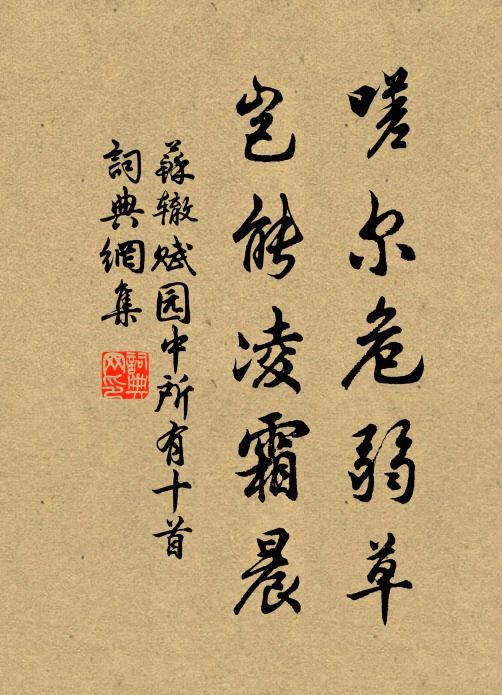 嗟尔危弱草
岂能凌霜晨
蘇辙赋园中所有十首
詞典網集
詞典网印